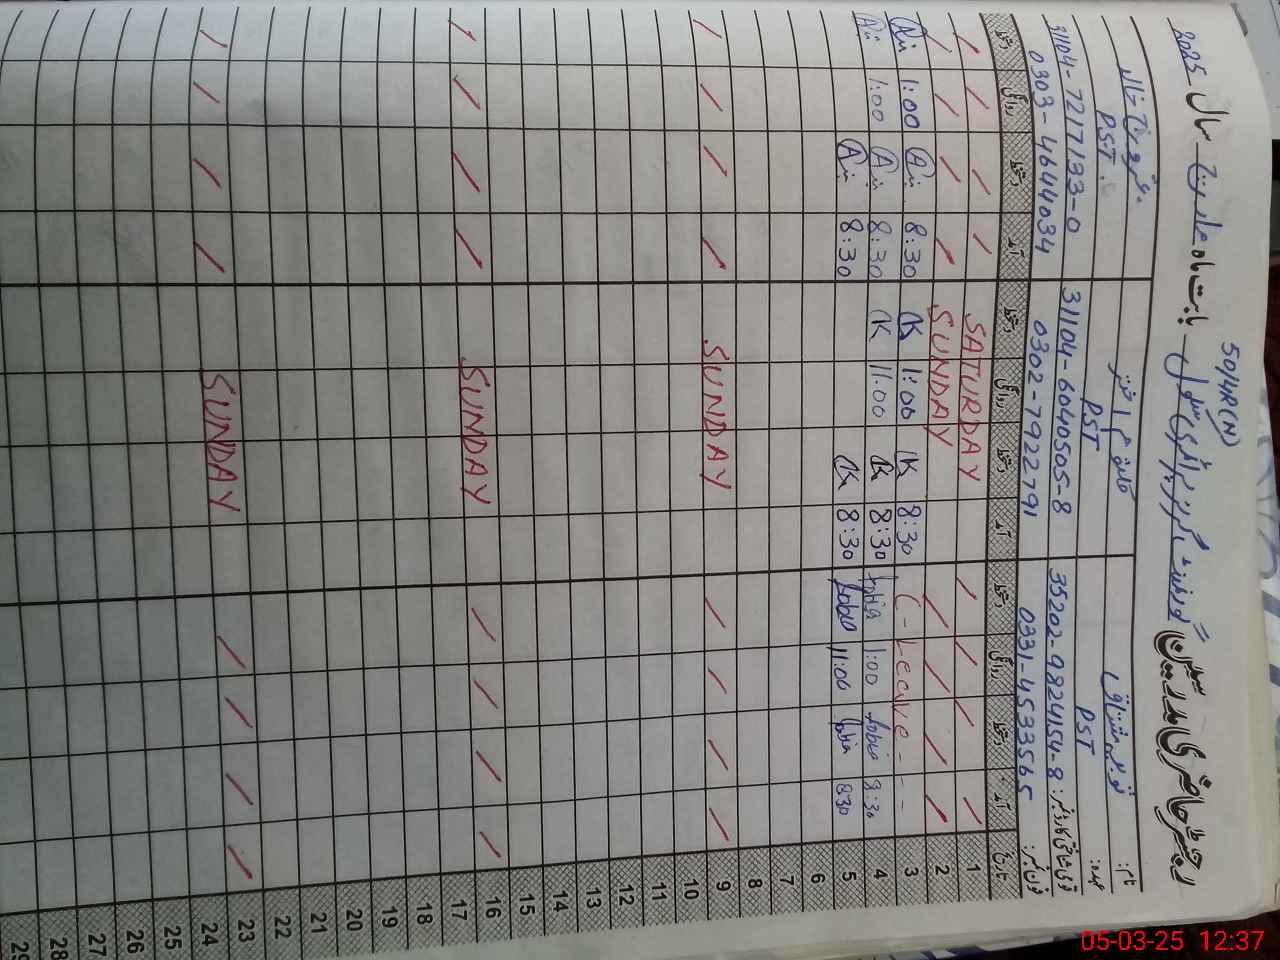 رجسٹر حاضری مدرسین گورنمنٹ گرلز پرائمری سکول 50/4R(N) بابت ماہ مارچ سال 2025
نام:
عہدہ: PST PST PST
قومی شناختی کارڈ نمبر: 35202-9824154-8 31104-6040505-8 31104-7217133-0
فون نمبر: 0331-4533565 0302-7922791 0303-4644034
تاریخ آمد دستخط روانگی دستخط آمد دستخط روانگی دستخط آمد دستخط روانگی دستخط
1 SATURDAY
2 SUNDAY
3 C-Leave-- 8:30 K 1:00 K 8:30 1:00
4 8:30 1:00 8:30 K 11:00 K 8:30 1:00
5 830 11:00 8:30 K 8:30
6
7
8
9 SUNDAY
10
11
12
13
14
15
16 SUNDAY
17
18
19
20
21
22
23 SUNDAY
24
25
26
27
28
29
05-03-25 12:37